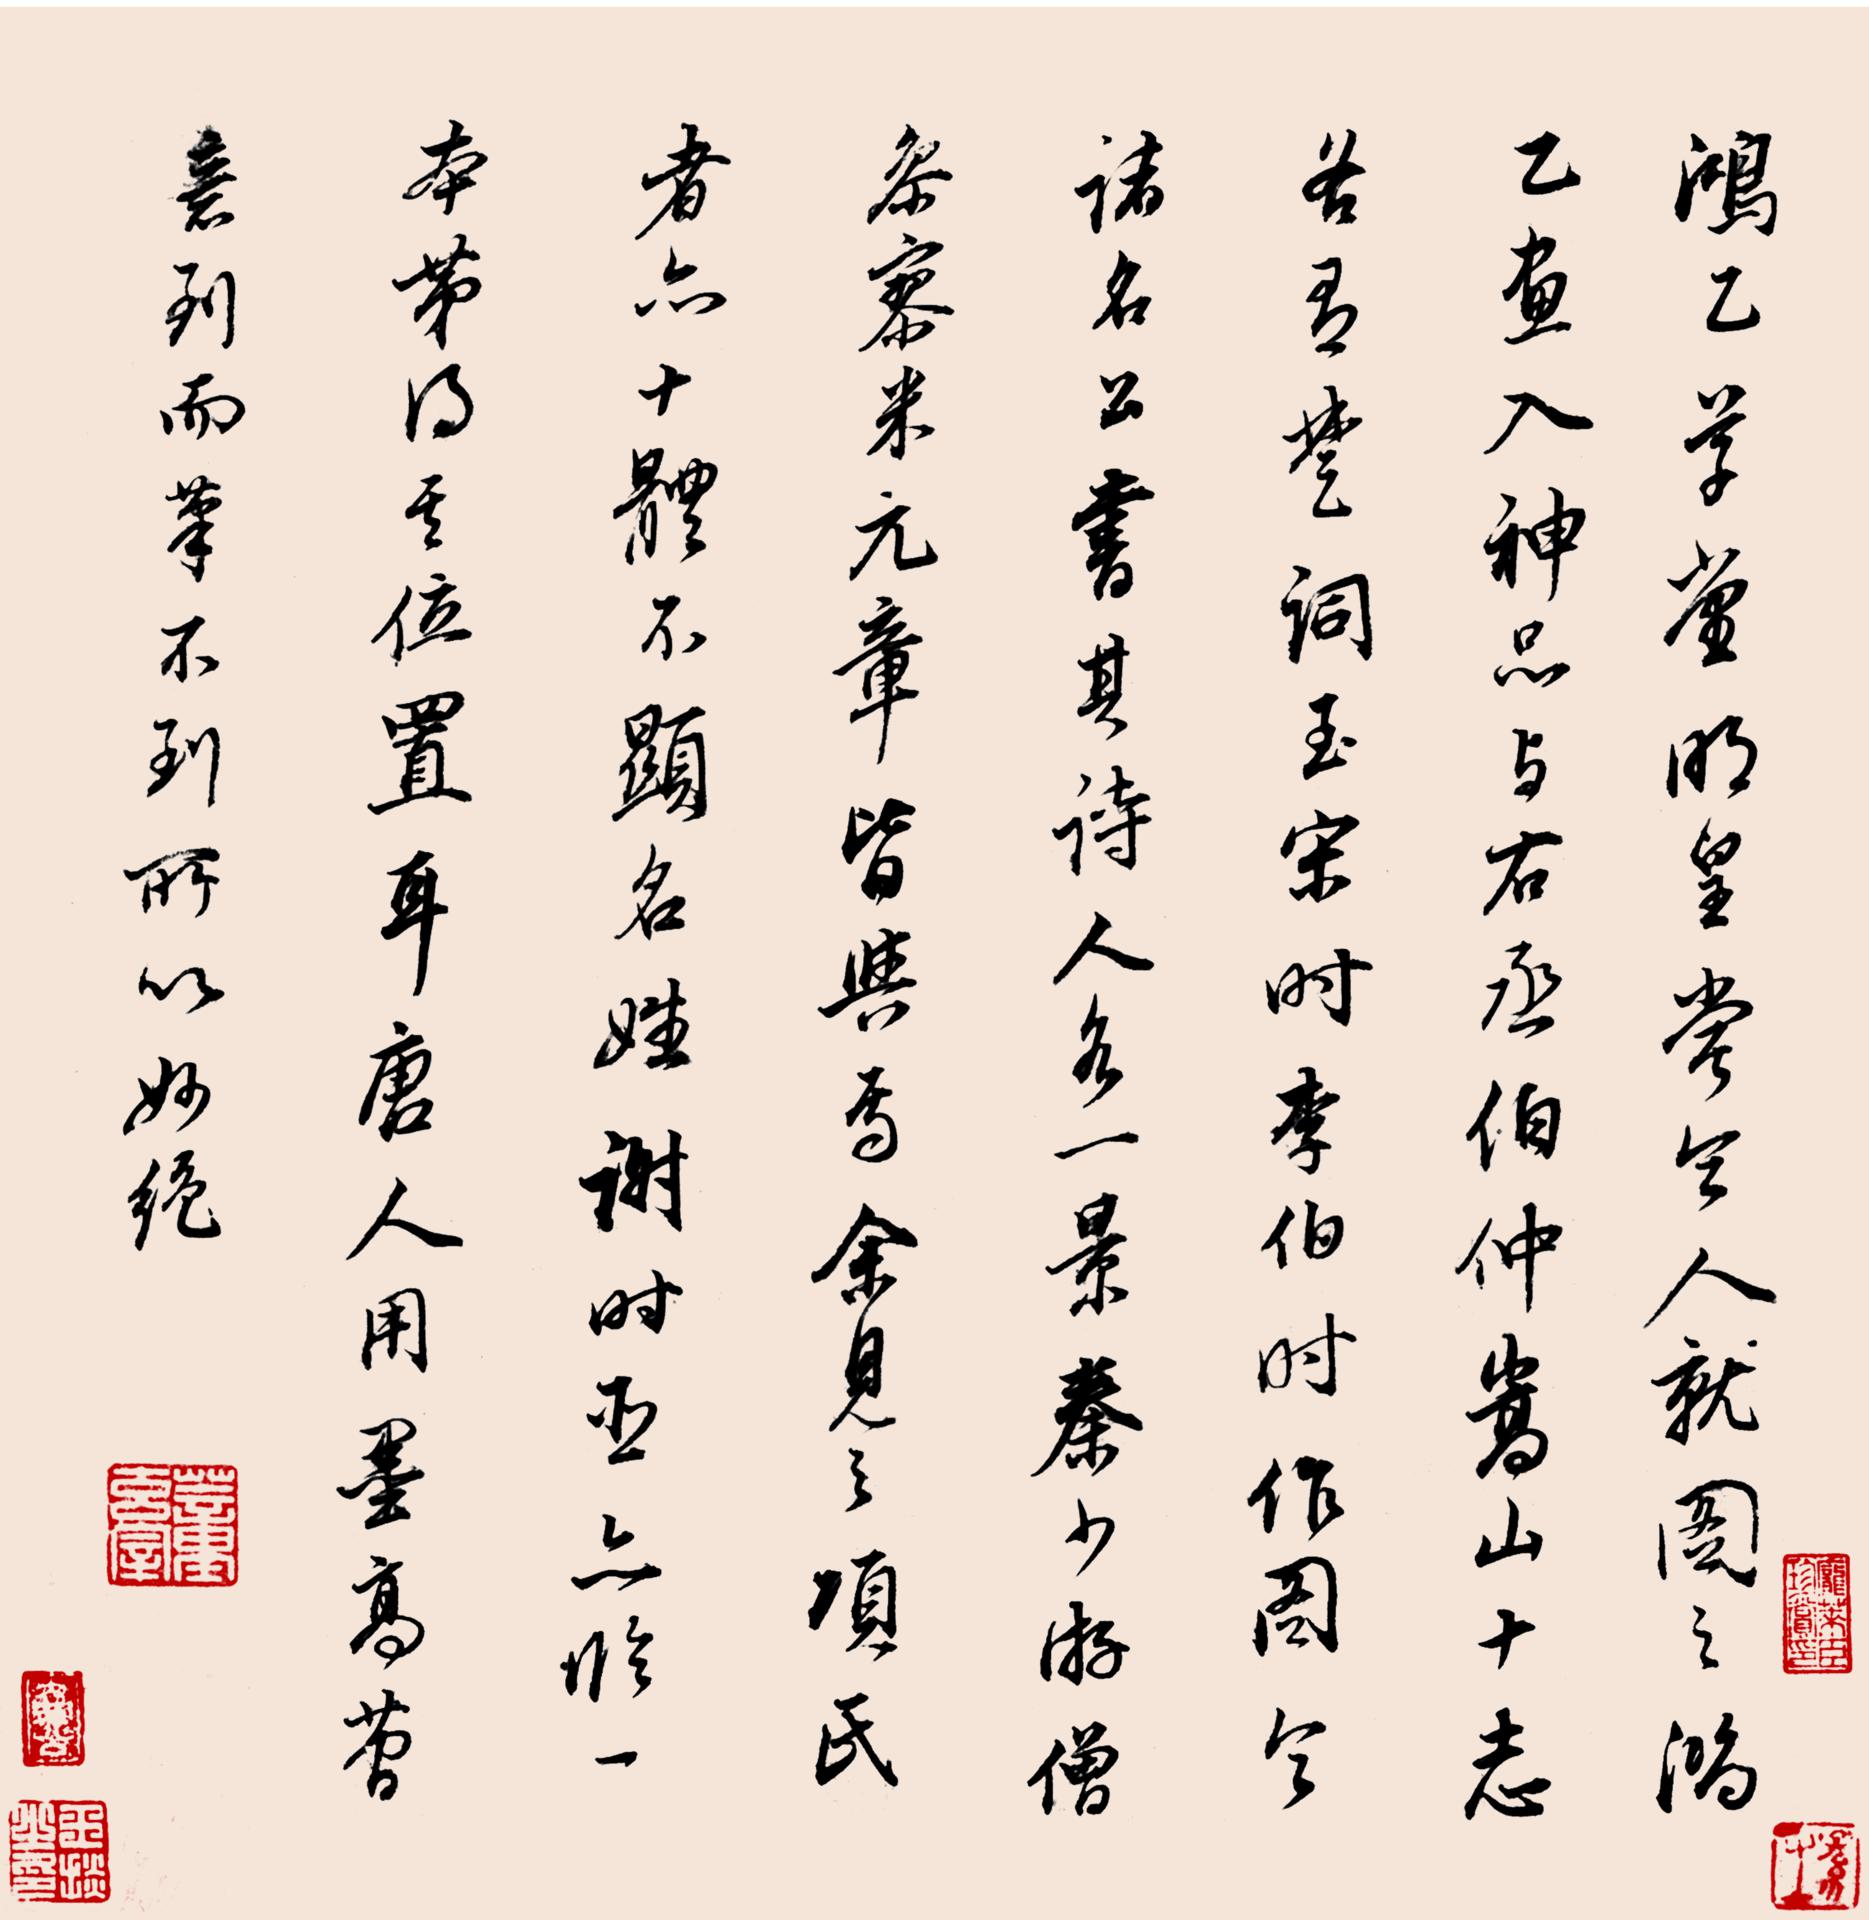 鴻乙草堂明皇嘗令人就圖之鴻
乙畫入神品与右丞伯仲嵩山十志
各有楚詞至宋时李伯时作圖令
諸名公書其詩人各一景秦少游僧
參寥米元章皆與焉余見之項氏
者亦十體不顯名姓謝时臣亦临一
本第得其位置耳唐人用墨高古
意到而筆不到所以妙絶